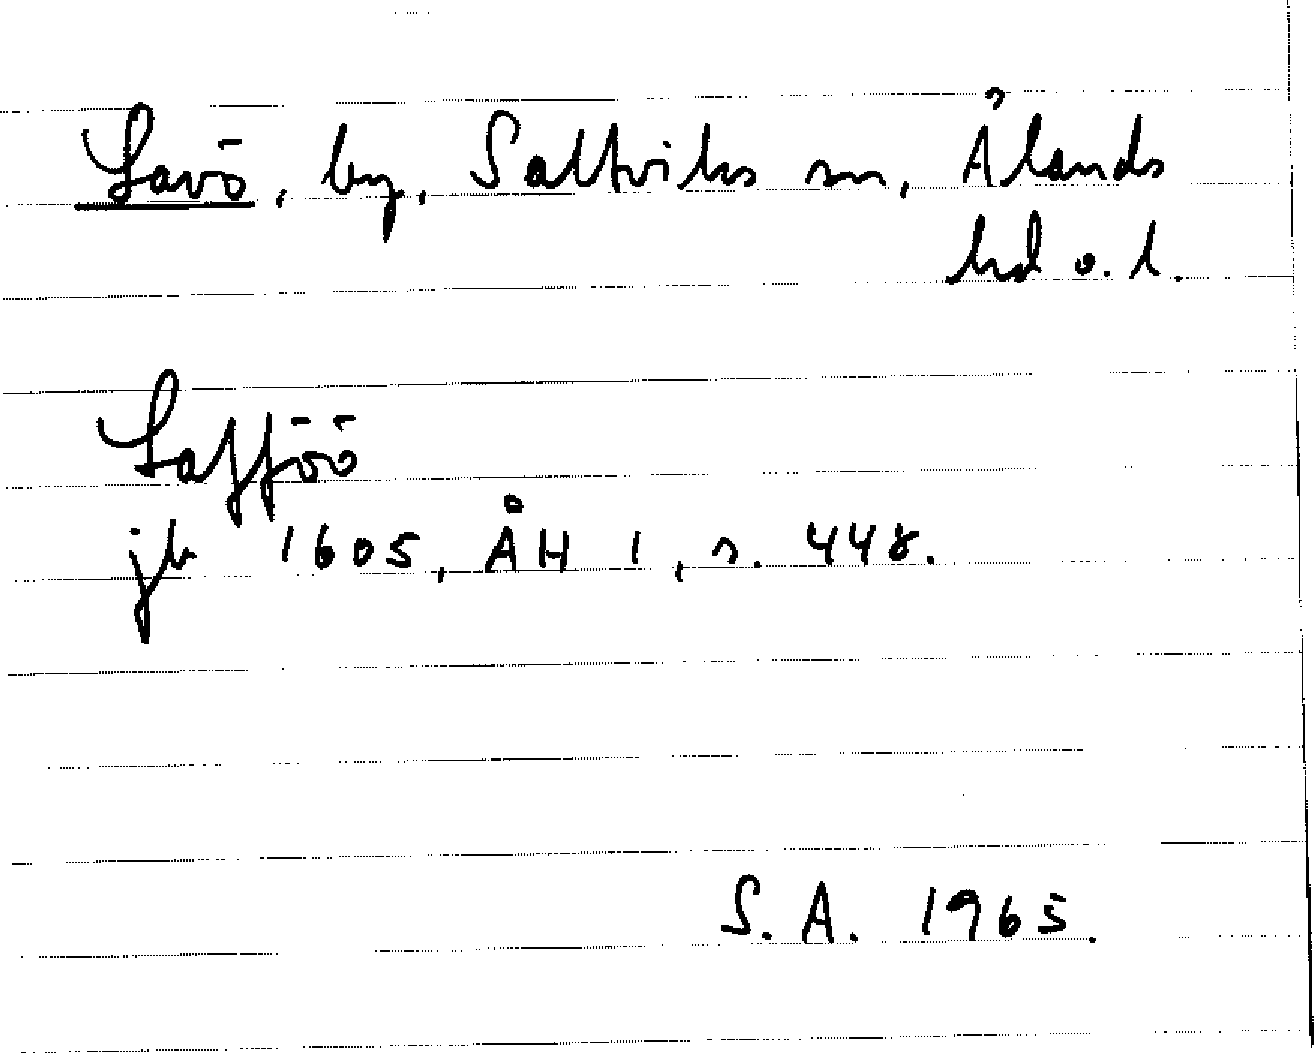 Lavö, by, Saltviks sn, Ålands
hd o. l.
Lafföö
jb 1605, ÅH 1, s. 448.
S. A. 1965.